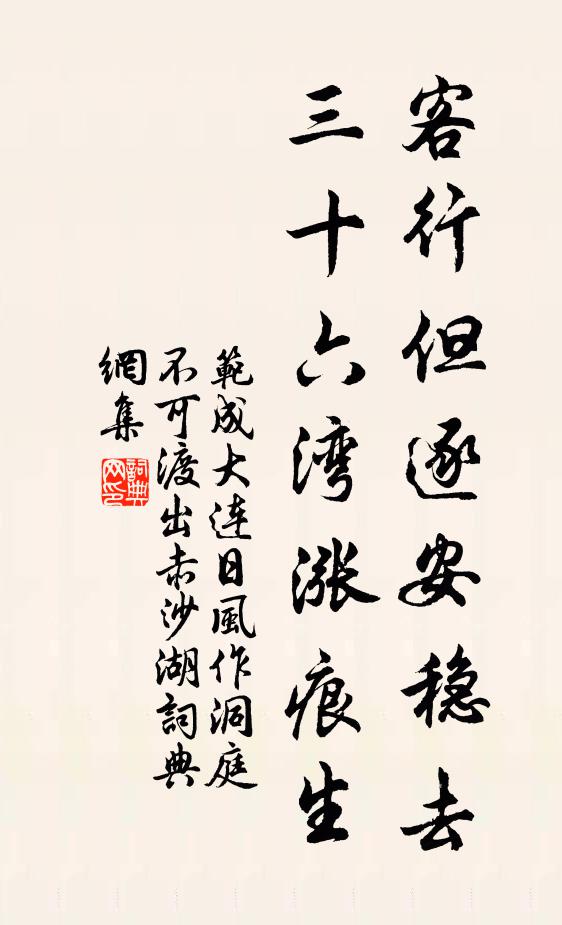 客行但逐安稳去
三十六湾涨痕生
範成大连日風作洞庭
不可渡出赤沙湖詞典
網集
詞典网印